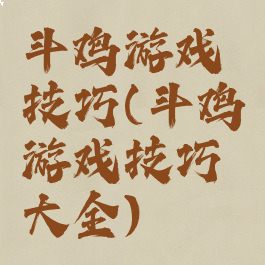 斗鸡游戏
技巧(斗鸡
游戏技巧
大全)